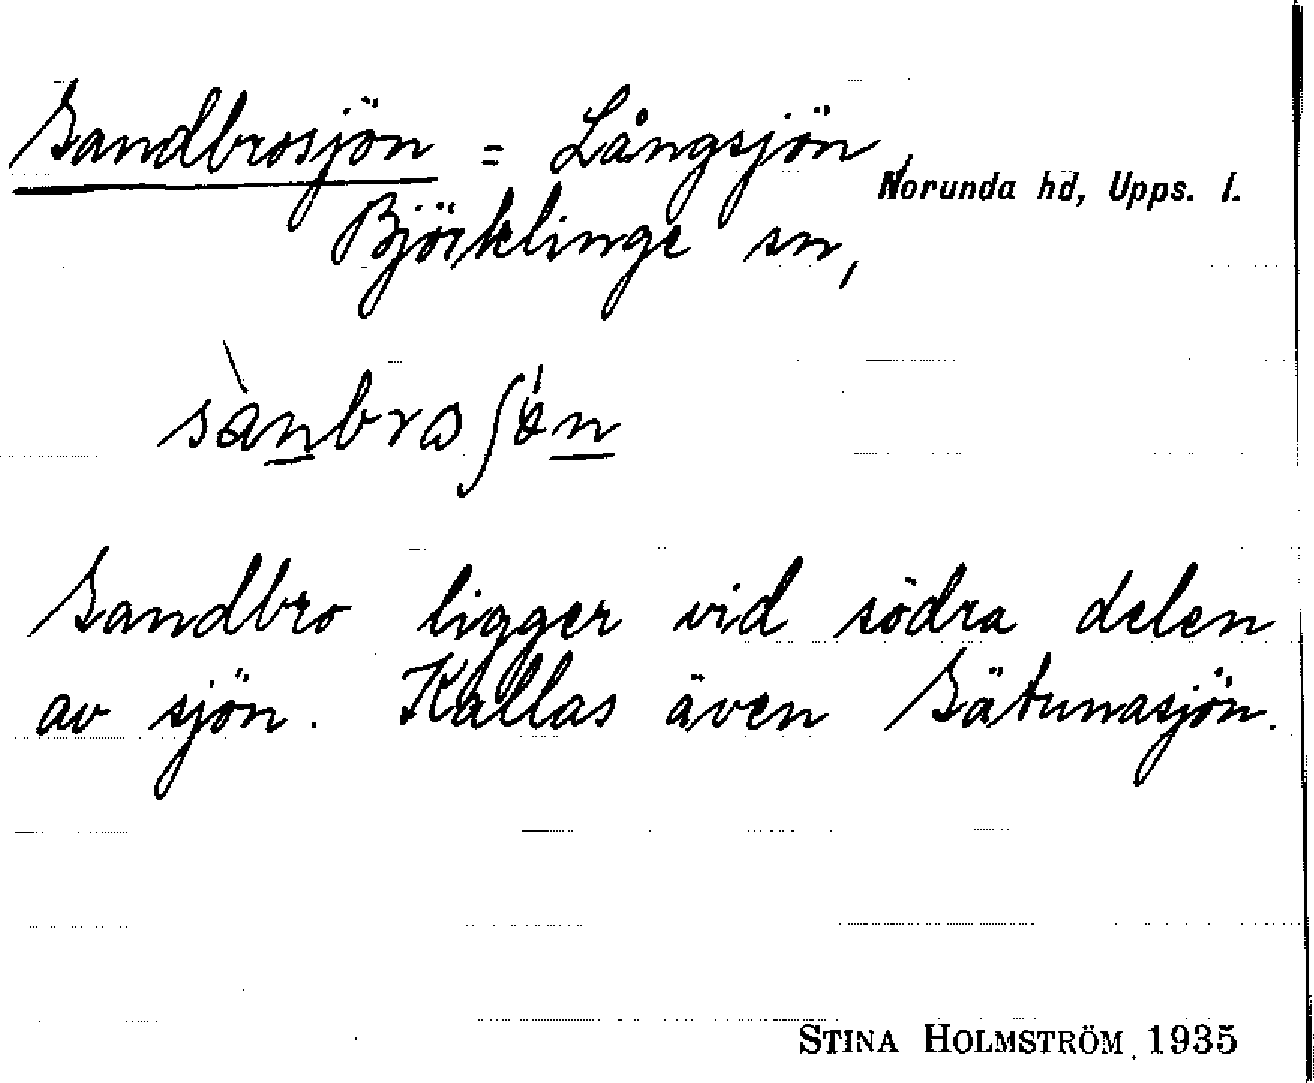 Sandbrosjön = Långsjön,
Norunda hd, Upps. l.
Björklinge sn,
sànbroʃǿn
Sandbro ligger vid södra delen
av sjön. Kallas även Sätunasjön.
STINA HOLMSTRÖM, 1935